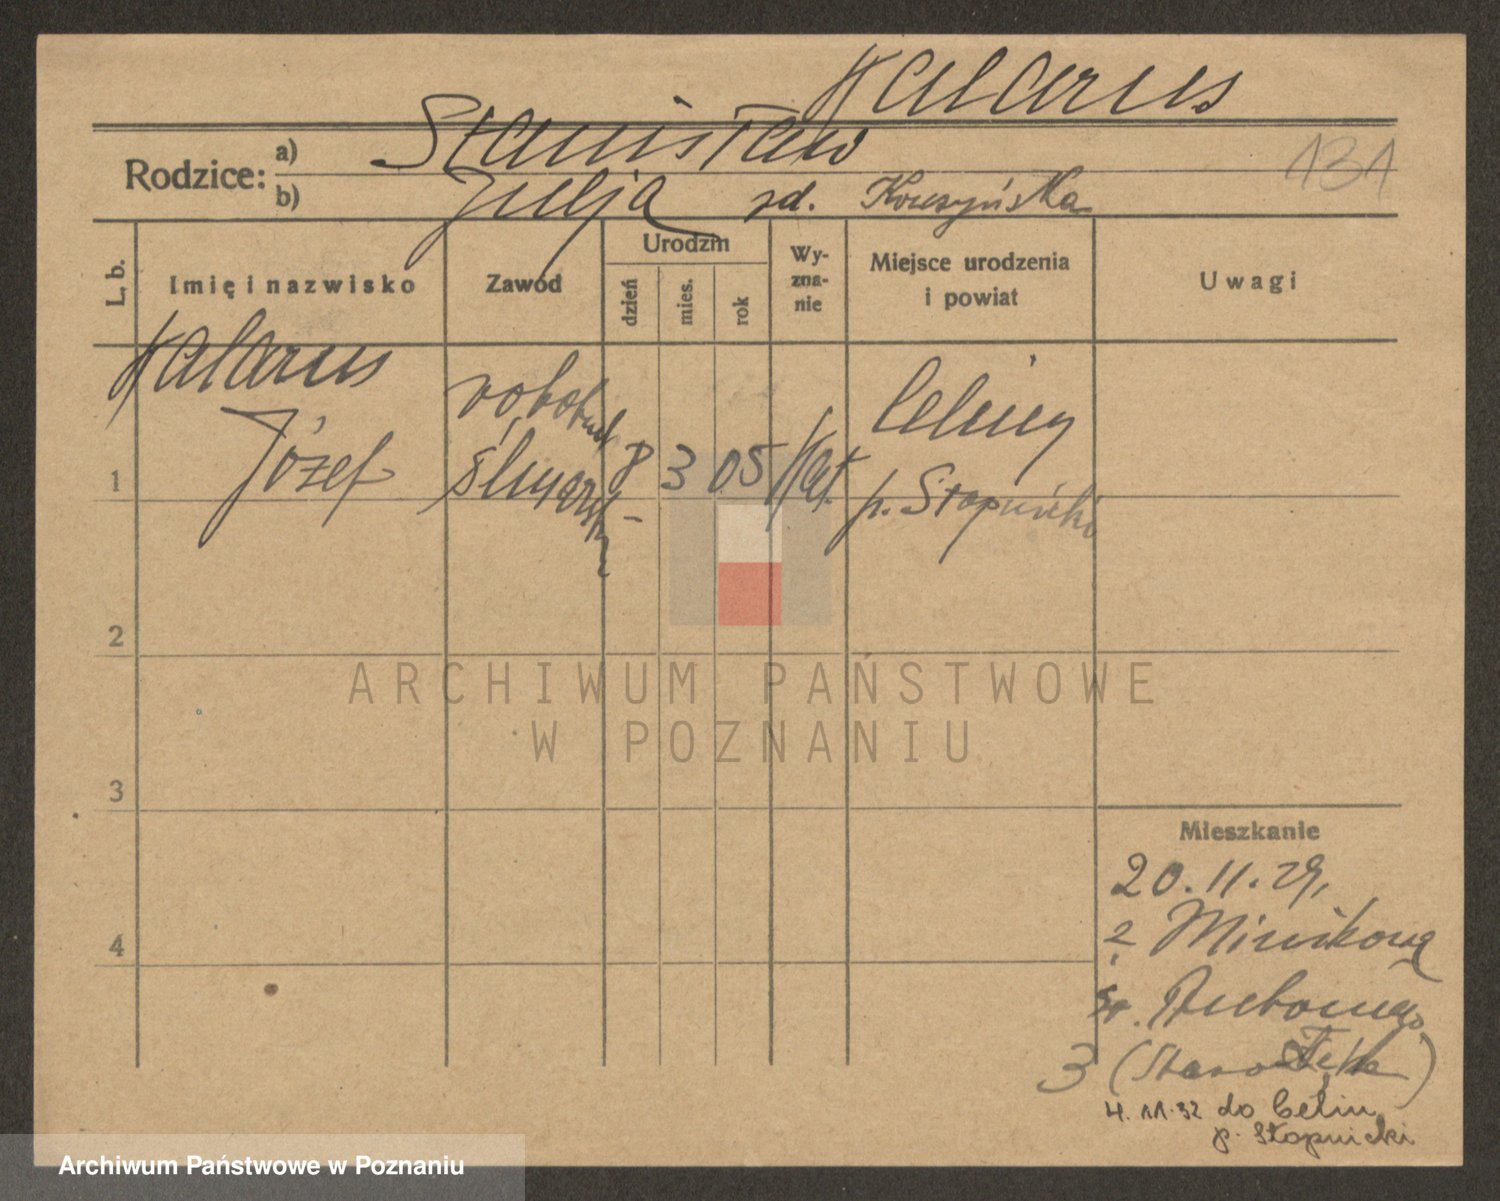 Kalarus
Rodzice: a) Stanisław
b) Julja zd.
131
L. b. Imię i nazwisko Zawód Urodzin dzień mies. rok Wy-zna-nie Miejsce urodzenia i powiat Uwagi
Kalarus robotnik
Józef 8 3 05 Kat.
1 p. Stopnicki
2
ARCHIWUM PAŃSTWOWE
W POZNANIU
3
Mieszkanie
20.11.29,
4
św. Antoniego
3 (Starołęka)
4.11.32 do Celin
p. Stopnicki
Archiwum Państwowe w Poznaniu